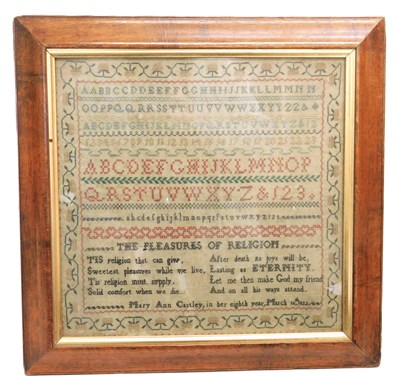 AABBCCDDEEFFGGHHIIJJKKLLMMNN
OOPPQQRRSSTTUUVVWWXXYYZZ&
ABCDEFGHIJKLMNOPQRSTUVWXYZ&123
ABCDEFGHIJKLMNOP
QRSTUVWXYZ&123
abcdefghijklmnopqrsſtuvwxyz123
THE PLEASURES OF RELIGION
TIS religion that can give,
Sweetest pleasures while we live,
Tis religion must supply,
Solid comfort when we die
After death as joys will be,
Lasting as ETERNITY.
Let me then make God my friend
And on all his ways attend.
Mary Ann Castley, in her eighth year, March